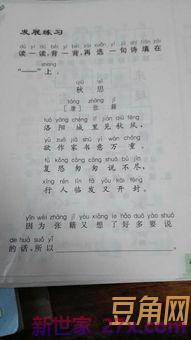 发展练习
dú yì dú bèi yí bèi zài xuǎn yí jù shī tián zài
读一读,背一背,再选一句诗填在
shang
“——”上。
qiū sī
秋思
táng zhāng jí
[唐] 张籍
luò yáng chéng lǐ jiàn qiū fēng
洛阳城里见秋风,
yù zuò jiā shū yì wàn chóng
欲作家书意万重。
fù kǒng cōng cōng shuō bú jìn
复恐匆匆说不尽,
xíng rén lín fā yòu kāi fēng
行人临发又开封。
yīn wèi zhāng jí yòu xiǎng le hǎo duō yào shuō
因为张籍又想了好多要说
de huà suǒ yǐ
的话,所以
豆角网
新世家 27x.com